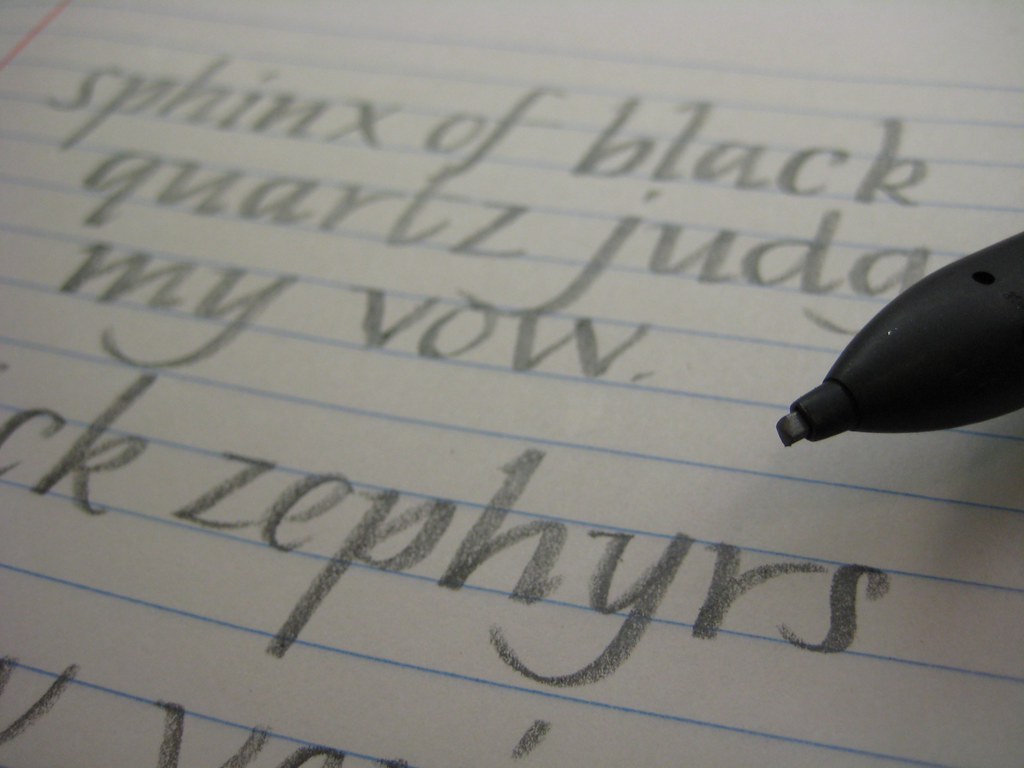 sphinx of black
quartz judg
my vow.
ck zephyrs